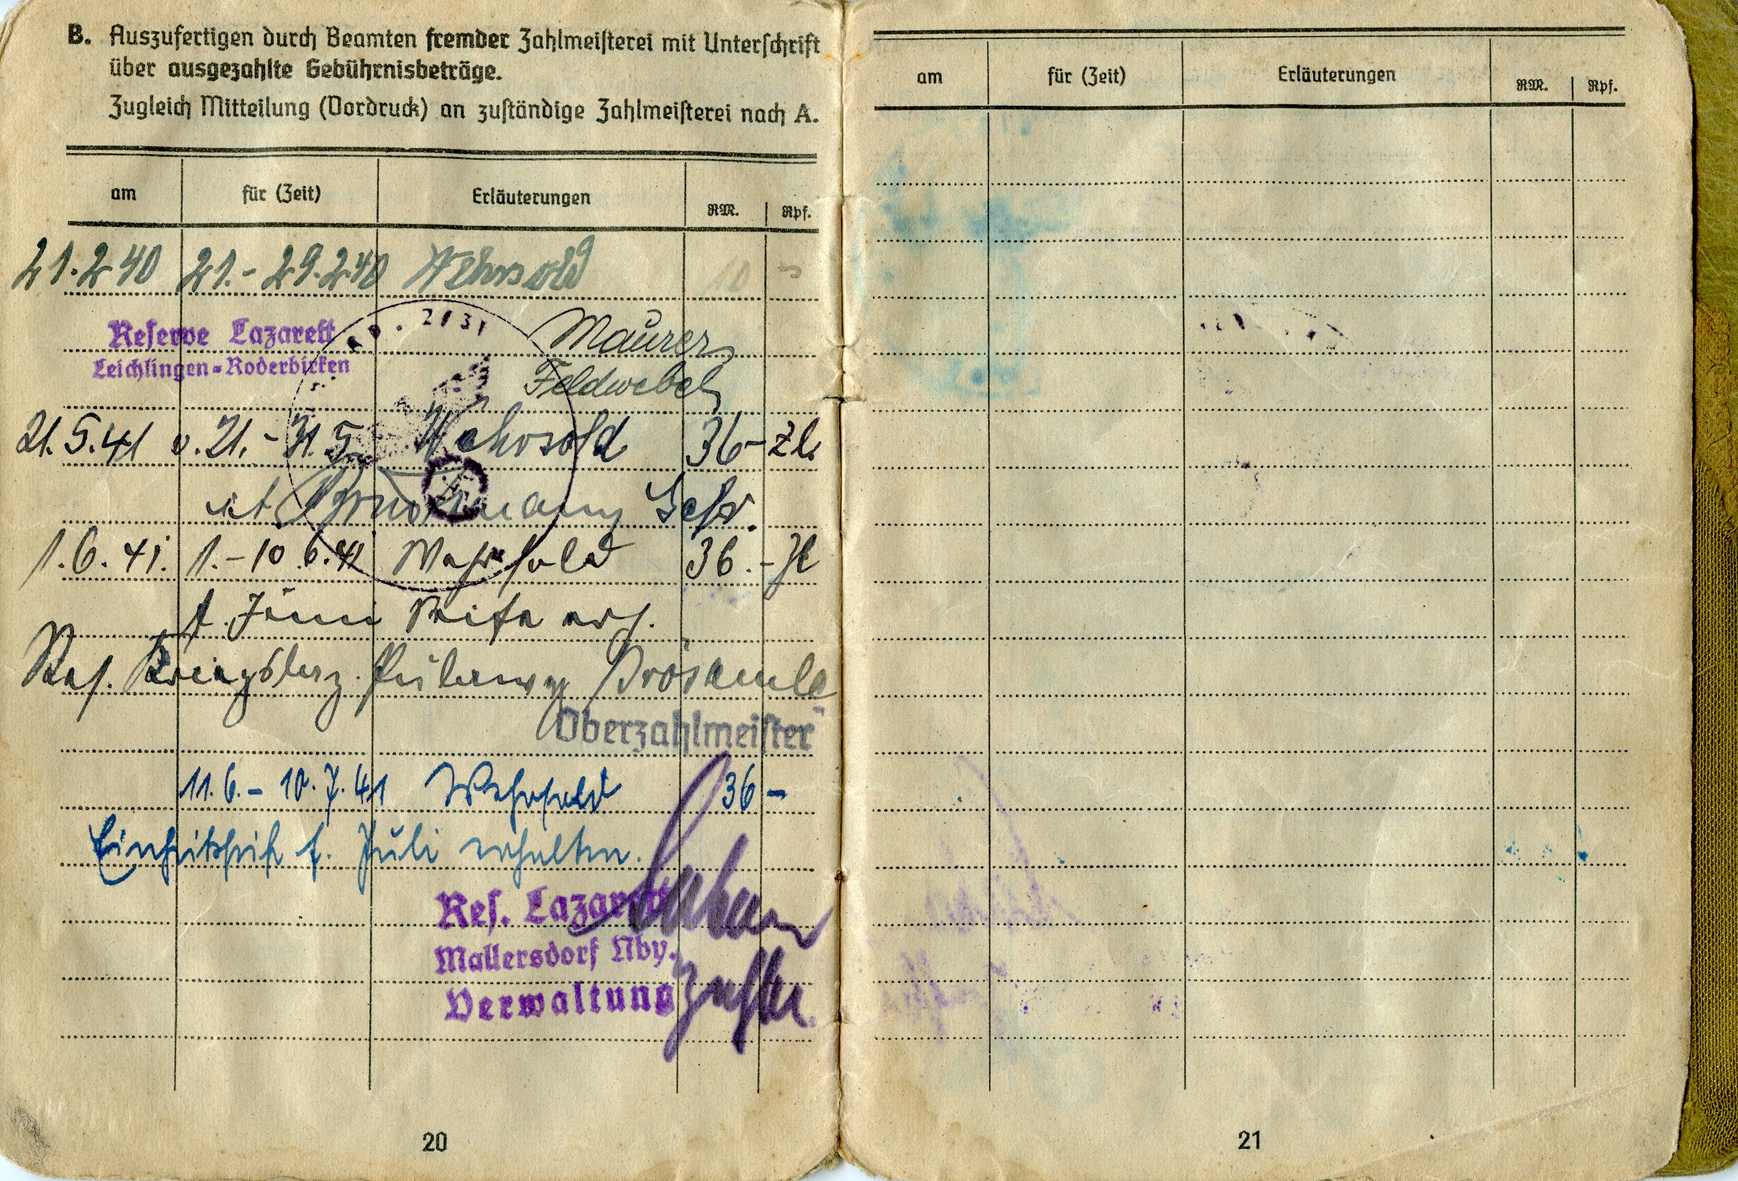 B. Auszufertigen durch Beamten fremder Zahlmeisterei mit Unterschrift
über ausgezahlte Gebührnisbeträge.
Zugleich Mitteilung (Vordruck) an zuständige Zahlmeisterei nach A.
am für (Zeit) Erläuterungen RM. Rpf.
21.2.40 21.-29.2.40 Wehrsold 10 -
Reserve Lazarett
Leichlingen-Roderbirken
Maurer
Feldwebel
21.5.41 v. 21.-31.5. Wehrsold 36-
Gefr.
1.6.41. 1.-10.6.41 Wehrsold 36.-
f. Juni Seife erh.
Oberzahlmeister
11.6.- 10.7.41 Wehrsold 36-
Einheitsseife f. Juli erhalten.
Res. Lazarett
Mallersdorf Nby.
Verwaltung
20
am für (Zeit) Erläuterungen RM. Rpf.
21